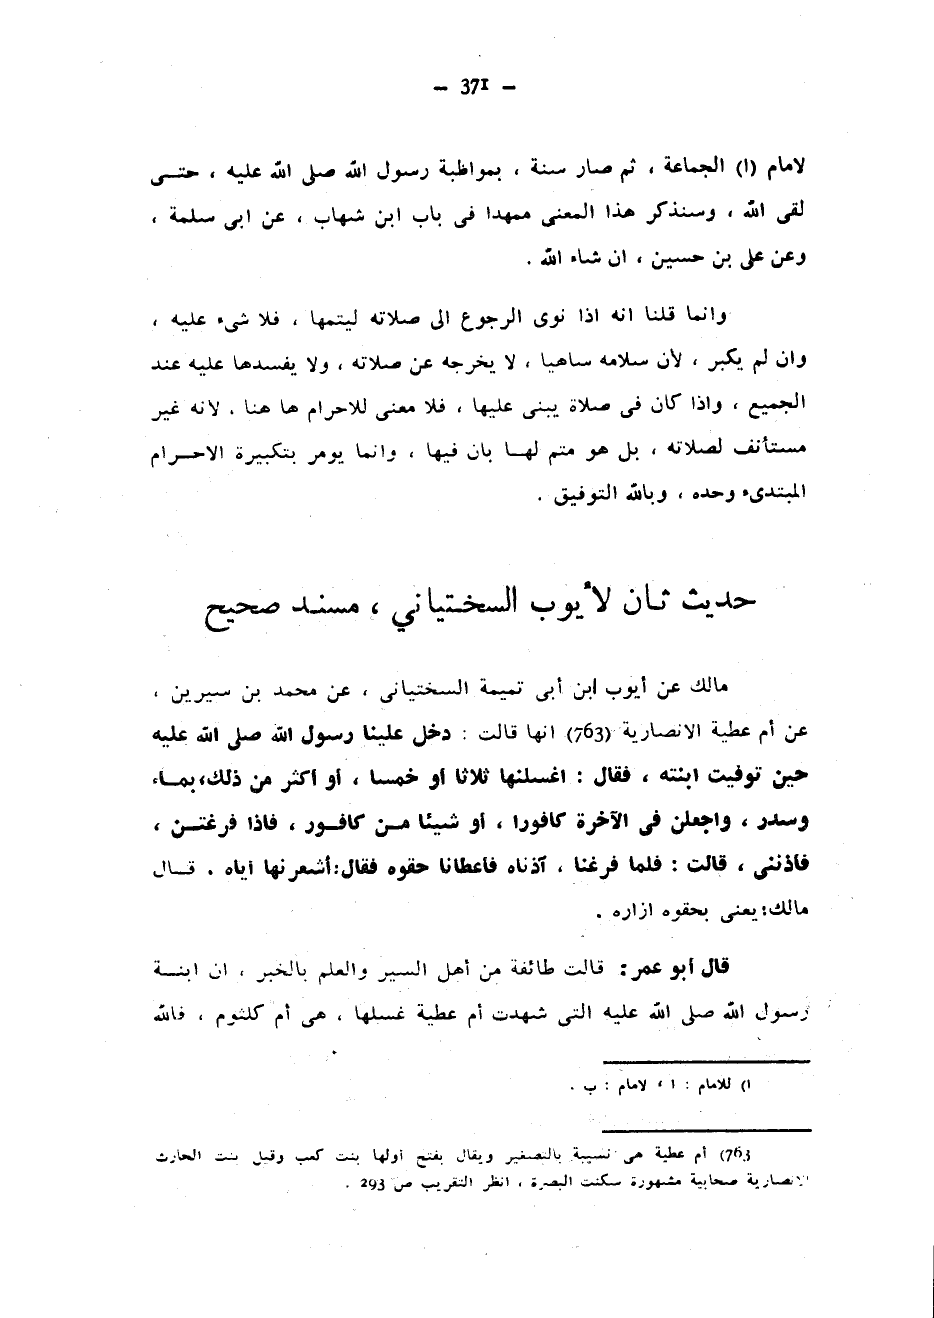 — 371 —
لامام (١) الجماعة ، ثم صار سنة ، بمواظبة رسول الله صلى الله عليه ، حتـى
لقى الله ، وسنذكر هذا المعنى ممهدا فى باب ابن شهاب ، عن ابى سلمة ،
وعن على بن حسين ، ان شاء الله .
وانما قلنا انه اذا نوى الرجوع الى صلاته ليتمها ، فلا شىء عليه ،
وان لم يكبر ، لأن سلامه ساهيا ، لا يخرجه عن صلاته ، ولا يفسدها عليه عند
الجميع ، واذا كان فى صلاة يبنى عليها ، فلا معنى للاحرام ها هنا . لانه غير
مستأنف لصلاته ، بل هو متم لهـا بان فيها ، وانما يومر بتكبيرة الاحـرام
المبتدىء وحده ، وبالله التوفيق .
حديث ثـان لأيوب السختياني ، مسند صحيح
مالك عن أيوب ابن أبى تميمة السختيانى ، عن محمد بن سيرين ،
عن أم عطية الانصارية (763) انها قالت : دخل علينا رسول الله صلى الله عليه
حين توفيت ابنته ، فقال : اغسلنها ثلاثا أو خمسا ، أو أكثر من ذلك، بمـاء
وسدر ، واجعلن فى الآخرة كافورا ، أو شيئا مـن كافـور ، فاذا فرغتـن ،
فآذننى ، قالت : فلما فرغنا ، آذناه فأعطانا حقوه فقال: أشعرنها اياه . قـال
مالك: يعنى بحقوه ازاره .
قال أبو عمر : قالت طائفة من أهل السير والعلم بالخبر ، ان ابنـة
رسول الله صلى الله عليه التى شهدت أم عطية غسلها ، هى أم كلثوم ، فالله
١) للامام : ا ، لامام : ب .
763) أم عطية هى نسيبة بالتصغير ويقال بفتح اولها بنت كعب وقيل بنت الحارث
الانصارية صحابية مشهورة سكنت البصرة ، انظر التقريب ص 293 .